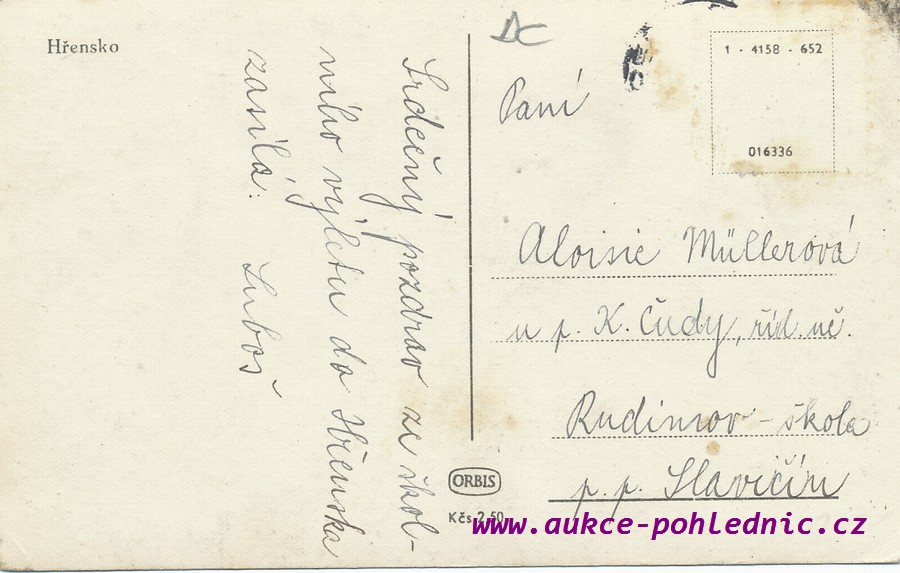 Hřensko
Srdečný pozdrav ze škol-
ního výletu do Hřenska
zasílá:   Luboš
DC
1 - 4158 - 652
016336
Paní
Aloisie Müllerová
u p. K. Čudy, říd. uč.
Rudimov - škola
p. p. Slavičín
ORBIS
Kčs 2,50
www.aukce-pohlednic.cz